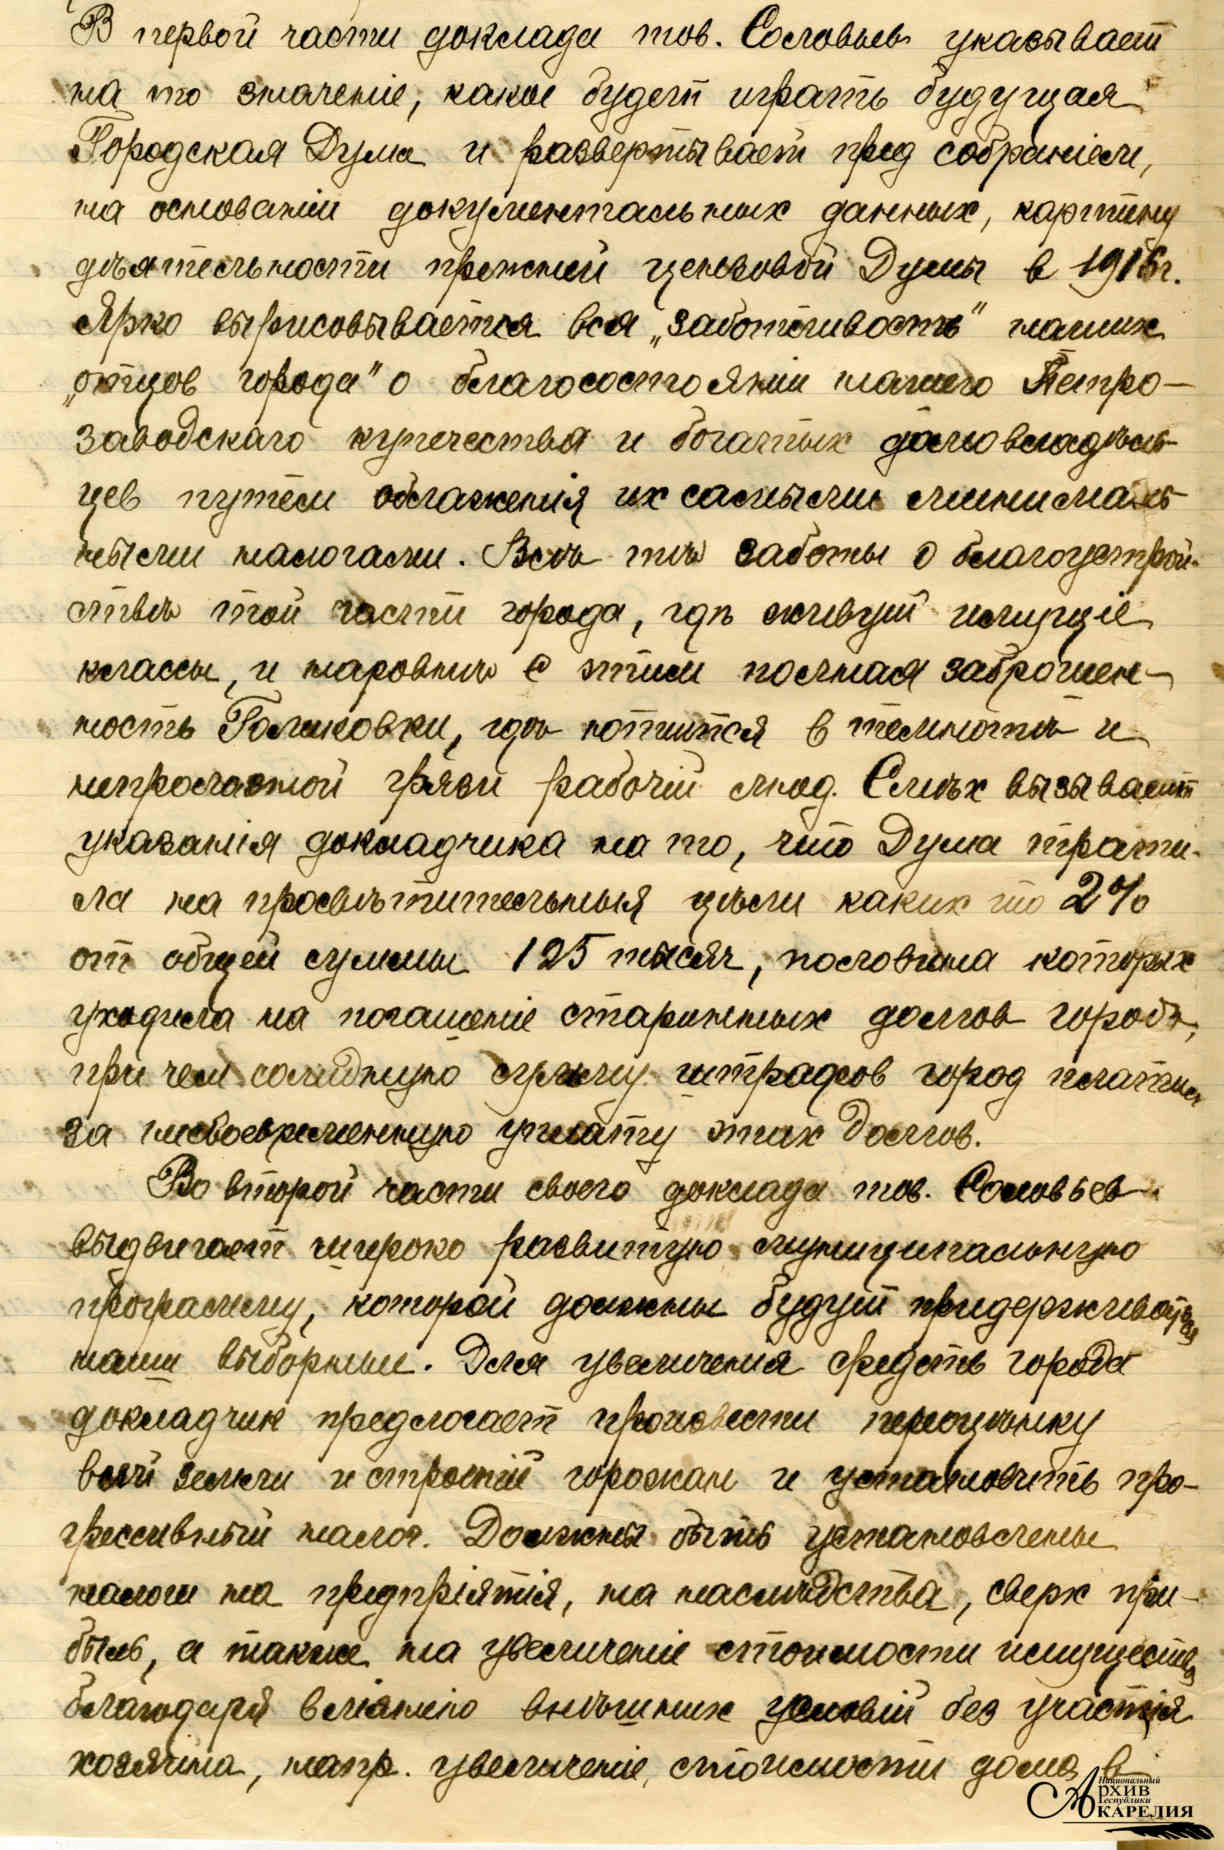 В первой части доклада тов. Соловьев указывает
на то значеніе, какое будет играть будущая
Городская Дума и развертывает пред собраніем,
на основаніи документальных данных, картину
дѣятельности прежней цензовой Думы в 1916 г.
Ярко вырисовывается вся „заботливость" наших
„отцов города" о благосостояніи нашего Петро-
заводскаго купечества и богатых домовладѣль-
цев путем обложенія их самыми минималь-
ными налогами. Всѣ тѣ заботы о благоустрой-
ствѣ той части города, гдѣ живут имущіе
классы, и наровнѣ с этим полная заброшен-
ность Голиковки, гдѣ ютится в темнотѣ и
непролазной грязи рабочій люд. Смѣх вызывает
указанія докладчика на то, что Дума трати-
ла на просвѣтительныя цѣли каких то 2%
от общей суммы 125 тысяч, половина которых
уходила на погашеніе старинных долгов города,
при чем солидную сумму штрафов город платил
за несвоевременную уплату этих долгов.
Во второй части своего доклада тов. Соловьев
выдвигает широко развитую муниципальную
программу, которой должны будут придерживаться
наши выборные. Для увеличения средств города
докладчик предлогает произвести переоцѣнку
всей земли и строеній горожан и установить про-
грессивный налог. Должны быть установлены
налоги на предпріятія, на наслѣдства, сверх при-
быль, а также на увеличеніе стоимости имущества
благодаря вліянію внѣшних условій без участія
хозяина, напр. увеличеніе стоимости дома в
Национальный
Архив
Республики
Карелия